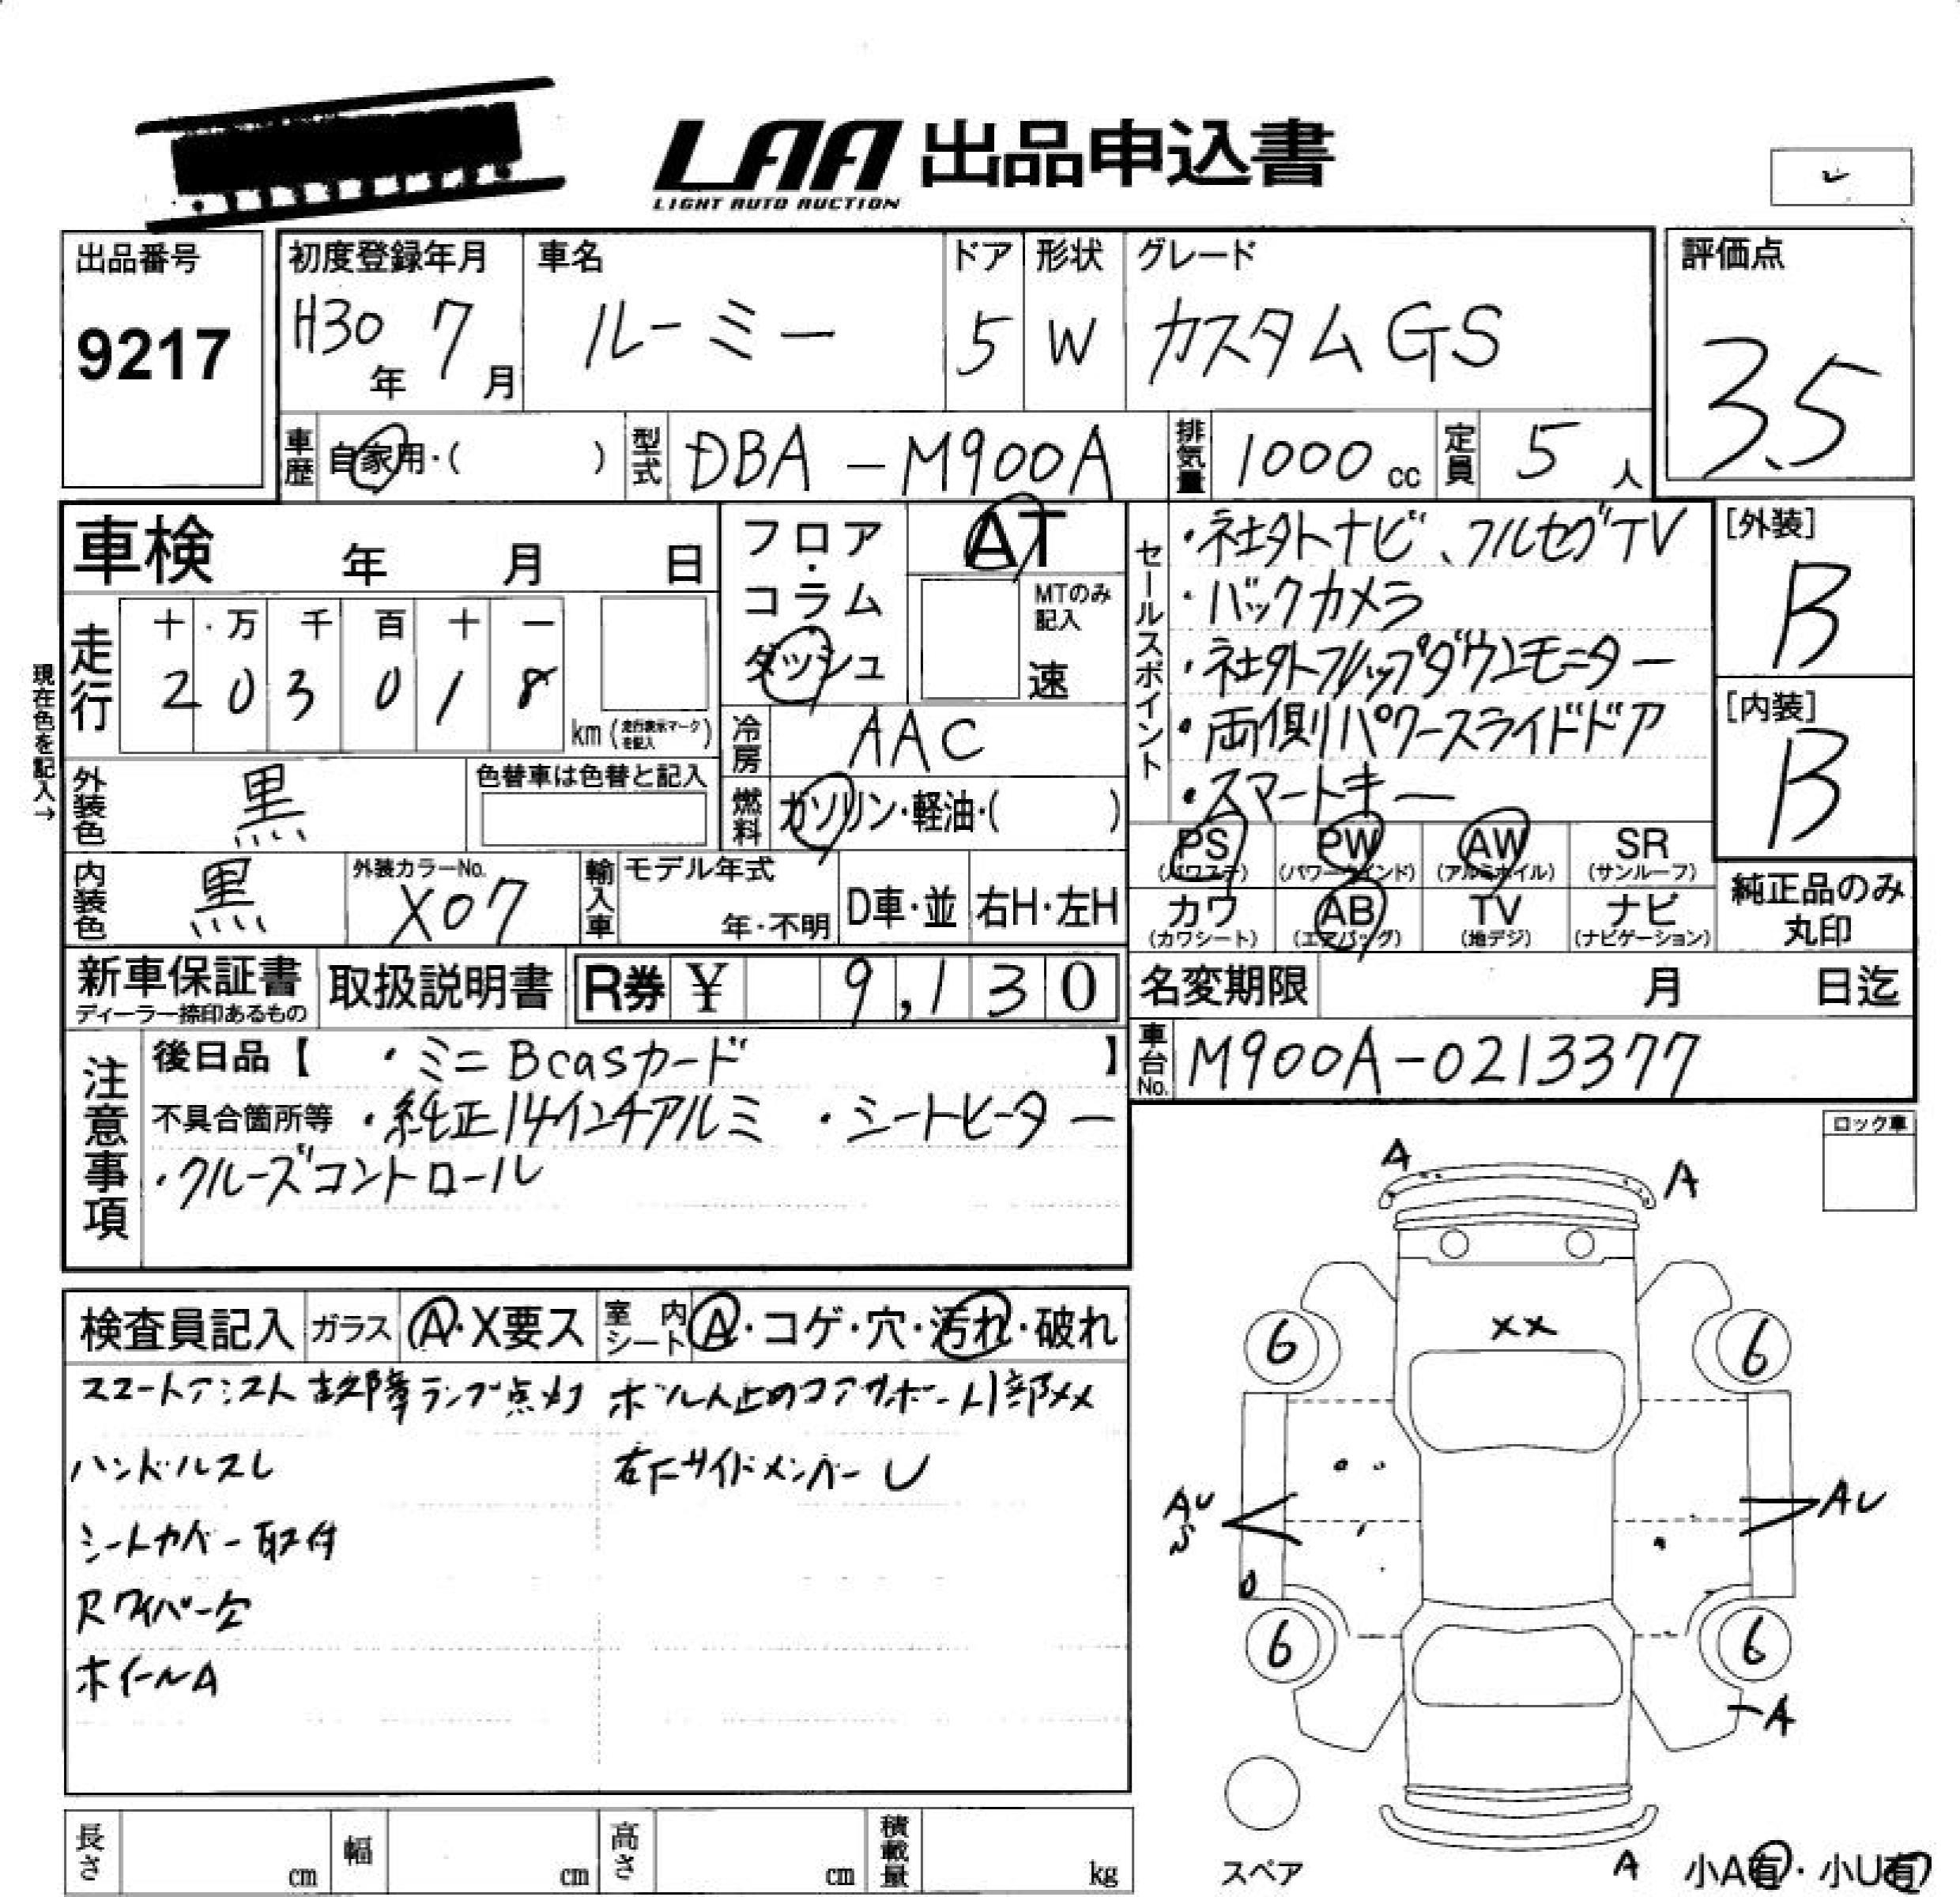 LAA 出品申込書
LIGHT AUTO AUCTION
出品番号
9217
初度登録年月
H30年 7月
車名
ルーミー
ドア
5
形状
W
グレード
カスタムGS
評価点
3.5
車歴 自家用・( )
型式 DBA-M900A
排気量 1000cc
定員 5人
車検 年 月 日
フロア・コラム
ダッシュ
AT
MTのみ記入
速
セールスポイント
・社外ナビ、フルセグTV
・バックカメラ
・社外フリップダウンモニター
・両側パワースライドドア
・スマートキー
[外装]
B
[内装]
B
現在色を記入→
走行
十・万 千 百 十 一
2 0 3 0 1 8
km (走行表示マークを記入)
冷房 AAC
燃料 ガソリン・軽油・( )
外装色 黒
色替車は色替と記入
内装色 黒
外装カラーNo.
X07
輸入車
モデル年式
年・不明
D車・並
右H・左H
PS (パワステ)
PW (パワーウインド)
AW (アルミホイル)
SR (サンルーフ)
カワ (カワシート)
AB (エアバッグ)
TV (地デジ)
ナビ (ナビゲーション)
純正品のみ丸印
新車保証書
ディーラー捺印あるもの
取扱説明書
R券 ¥ 9,130
名変期限 月 日迄
車台No. M900A-0213377
注意事項
後日品【 ・ミニBcasカード 】
不具合箇所等 ・純正14インチアルミ ・シートヒーター
・クルーズコントロール
ロック車
検査員記入
ガラス A・X要ス
室内シート A・コゲ・穴・汚れ・破れ
スマートアシスト故障ランプ点灯
ハンドルスレ
シートカバー取付
Rワイパー欠
ホイールA
ボルト止めコアサポート下部XX
右Fサイドメンバー U
A
A
XX
6
6
AU
S
AU
6
6
A
A
スペア
小A有・小U有
長さ cm
幅 cm
高さ cm
積載量 kg